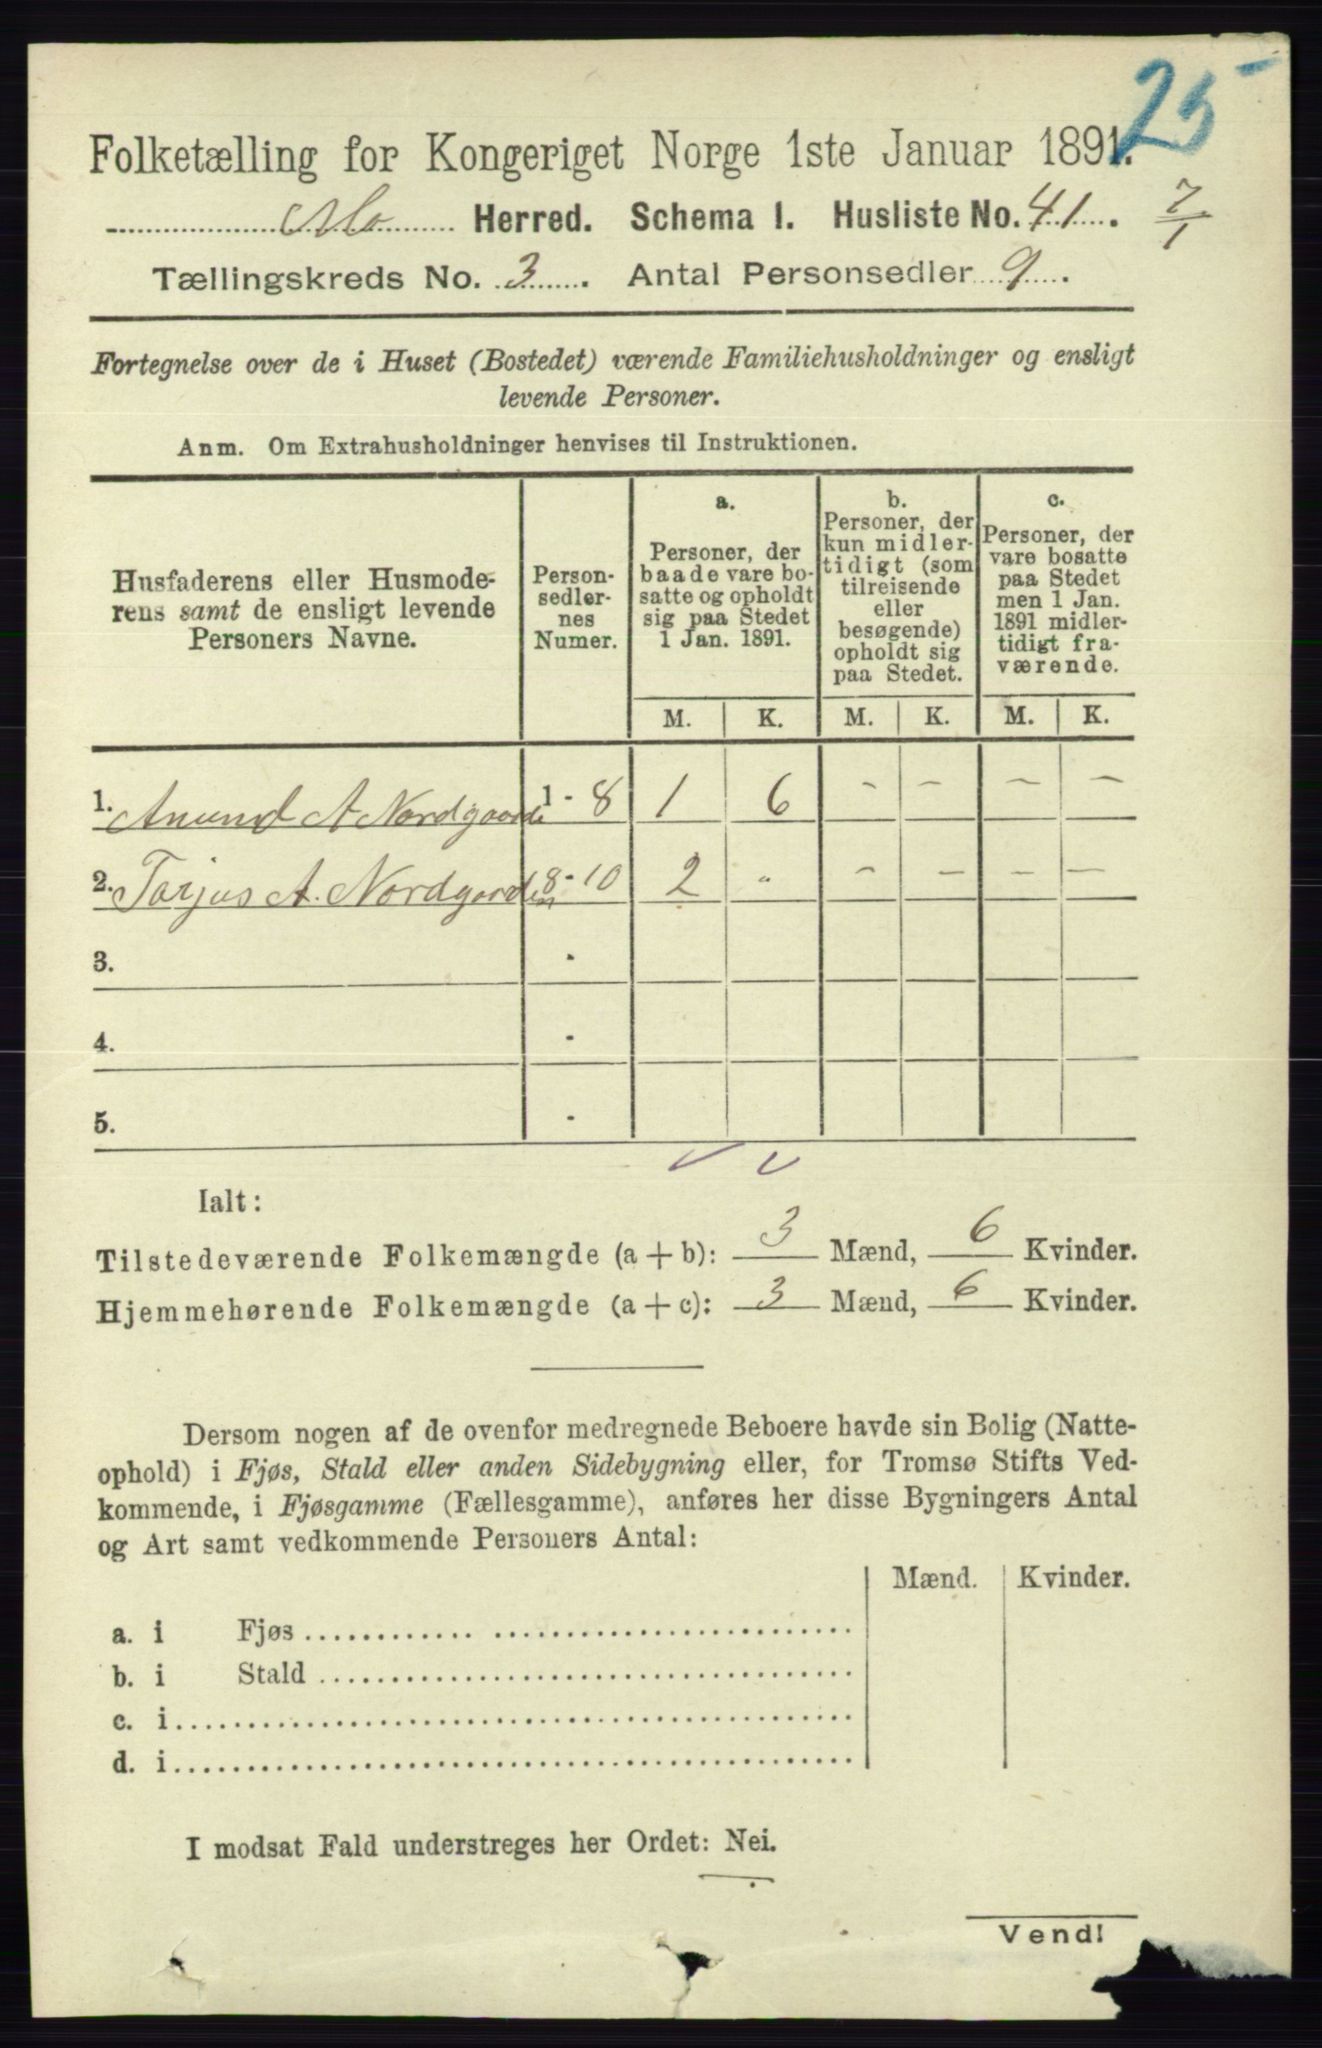 25
Folketælling for Kongeriget Norge 1ste Januar 1891.
Mo Herred. Schema 1. Husliste No. 41. 7/1
Tællingskreds No. 3. Antal Personsedler 9.
Fortegnelse over de i Huset (Bostedet) værende Familiehusholdninger og ensligt
levende Personer.
Anm. Om Extrahusholdninger henvises til Instruktionen.
Husfaderens eller Husmode-
rens samt de ensligt levende
Personers Navne.
Person-
sedler-
nes
Numer.
a.
Personer, der
baade vare bo-
satte og opholdt
sig paa Stedet
1 Jan. 1891.
b.
Personer, der
kun midler-
tidigt (som
tilreisende
eller
besøgende)
opholdt sig
paa Stedet.
c.
Personer, der
vare bosatte
paa Stedet
men 1 Jan.
1891 midler-
tidigt fra-
værende.
M. K. M. K. M. K.
1. Anund A Nordgaarde 1 - 8 1 6 - - - -
2. Tarjus A. Nordgarden 8 - 10 2 " - - - -
3. -
4. -
5. -
Ialt:
Tilstedeværende Folkemængde (a + b): 3 Mænd, 6 Kvinder.
Hjemmehørende Folkemængde (a + c): 3 Mænd, 6 Kvinder.
Dersom nogen af de ovenfor medregnede Beboere havde sin Bolig (Natte-
ophold) i Fjøs, Stald eller anden Sidebygning eller, for Tromsø Stifts Ved-
kommende, i Fjøsgamme (Fællesgamme), anføres her disse Bygningers Antal
og Art samt vedkommende Personers Antal:
Mænd. Kvinder.
a. i Fjøs
b. i Stald
c. i
d. i
I modsat Fald understreges her Ordet: Nei.
Vend!